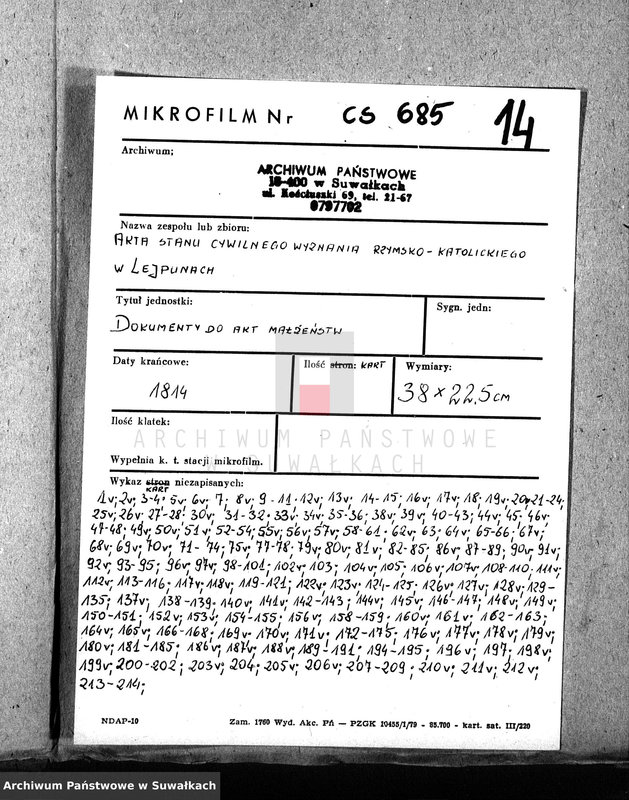 MIKROFILM Nr CS 685 14
Archiwum;
ARCHIWUM PAŃSTWOWE
16-400 w Suwałkach
ul. Kościuszki 69, tel. 21-67
0797702
Nazwa zespołu lub zbioru:
AKTA STANU CYWILNEGO WYZNANIA RZYMSKO-KATOLICKIEGO
W LEJPUNACH
Tytuł jednostki:
Sygn. jedn:
DOKUMENTY DO AKT MAŁŻEŃSTW
Daty krańcowe:
Ilość stron: KART
Wymiary:
1814
38 x 22,5 cm
Ilość klatek:
ARCHIWUM PAŃSTWOWE
W SUWAŁKACH
Wypełnia k. t. stacji mikrofilm.
Wykaz stron niezapisanych:
KART
1v; 2v; 3-4; 5v; 6v; 7; 8v; 9-11; 12v; 13v; 14-15; 16v; 17v; 18; 19v; 20; 21-24;
25v; 26v; 27-28; 30v; 31-32; 33v; 34v; 35-36; 38v; 39v; 40-43; 44v; 45; 46v
47-48; 49v; 50v; 51v; 52-54; 55v; 56v; 57v; 58-61; 62v; 63; 64v; 65-66; 67v;
68v; 69v; 70v; 71-74; 75v; 77-78; 79v; 80v; 81v; 82-85; 86v; 87-89; 90v; 91v;
92v; 93-95; 96v; 97v; 98-101; 102v; 103; 104v; 105; 106v; 107v; 108-110; 111v;
112v; 113-116; 117v; 118v; 119-121; 122v; 123v; 124-125; 126v; 127v; 128v; 129-
135; 137v; 138-139; 140v; 141v; 142-143; 144v; 145v; 146-147; 148v; 149v;
150-151; 152v; 153v; 154-155; 156v; 158-159; 160v; 161v; 162-163;
164v; 165v; 166-168; 169v; 170v; 171v; 172-175; 176v; 177v; 178v; 179v;
180v; 181-185; 186v; 187v; 188v; 189-191; 194-195; 196v; 197; 198v;
199v; 200-202; 203v; 204; 205v; 206v; 207-209; 210v; 211v; 212v;
213-214;
NDAP-10
Zam. 1760 Wyd. Akc. Pń — PZGK 10455/I/79 - 85.700 - kart. sat. III/220
Archiwum Państwowe w Suwałkach